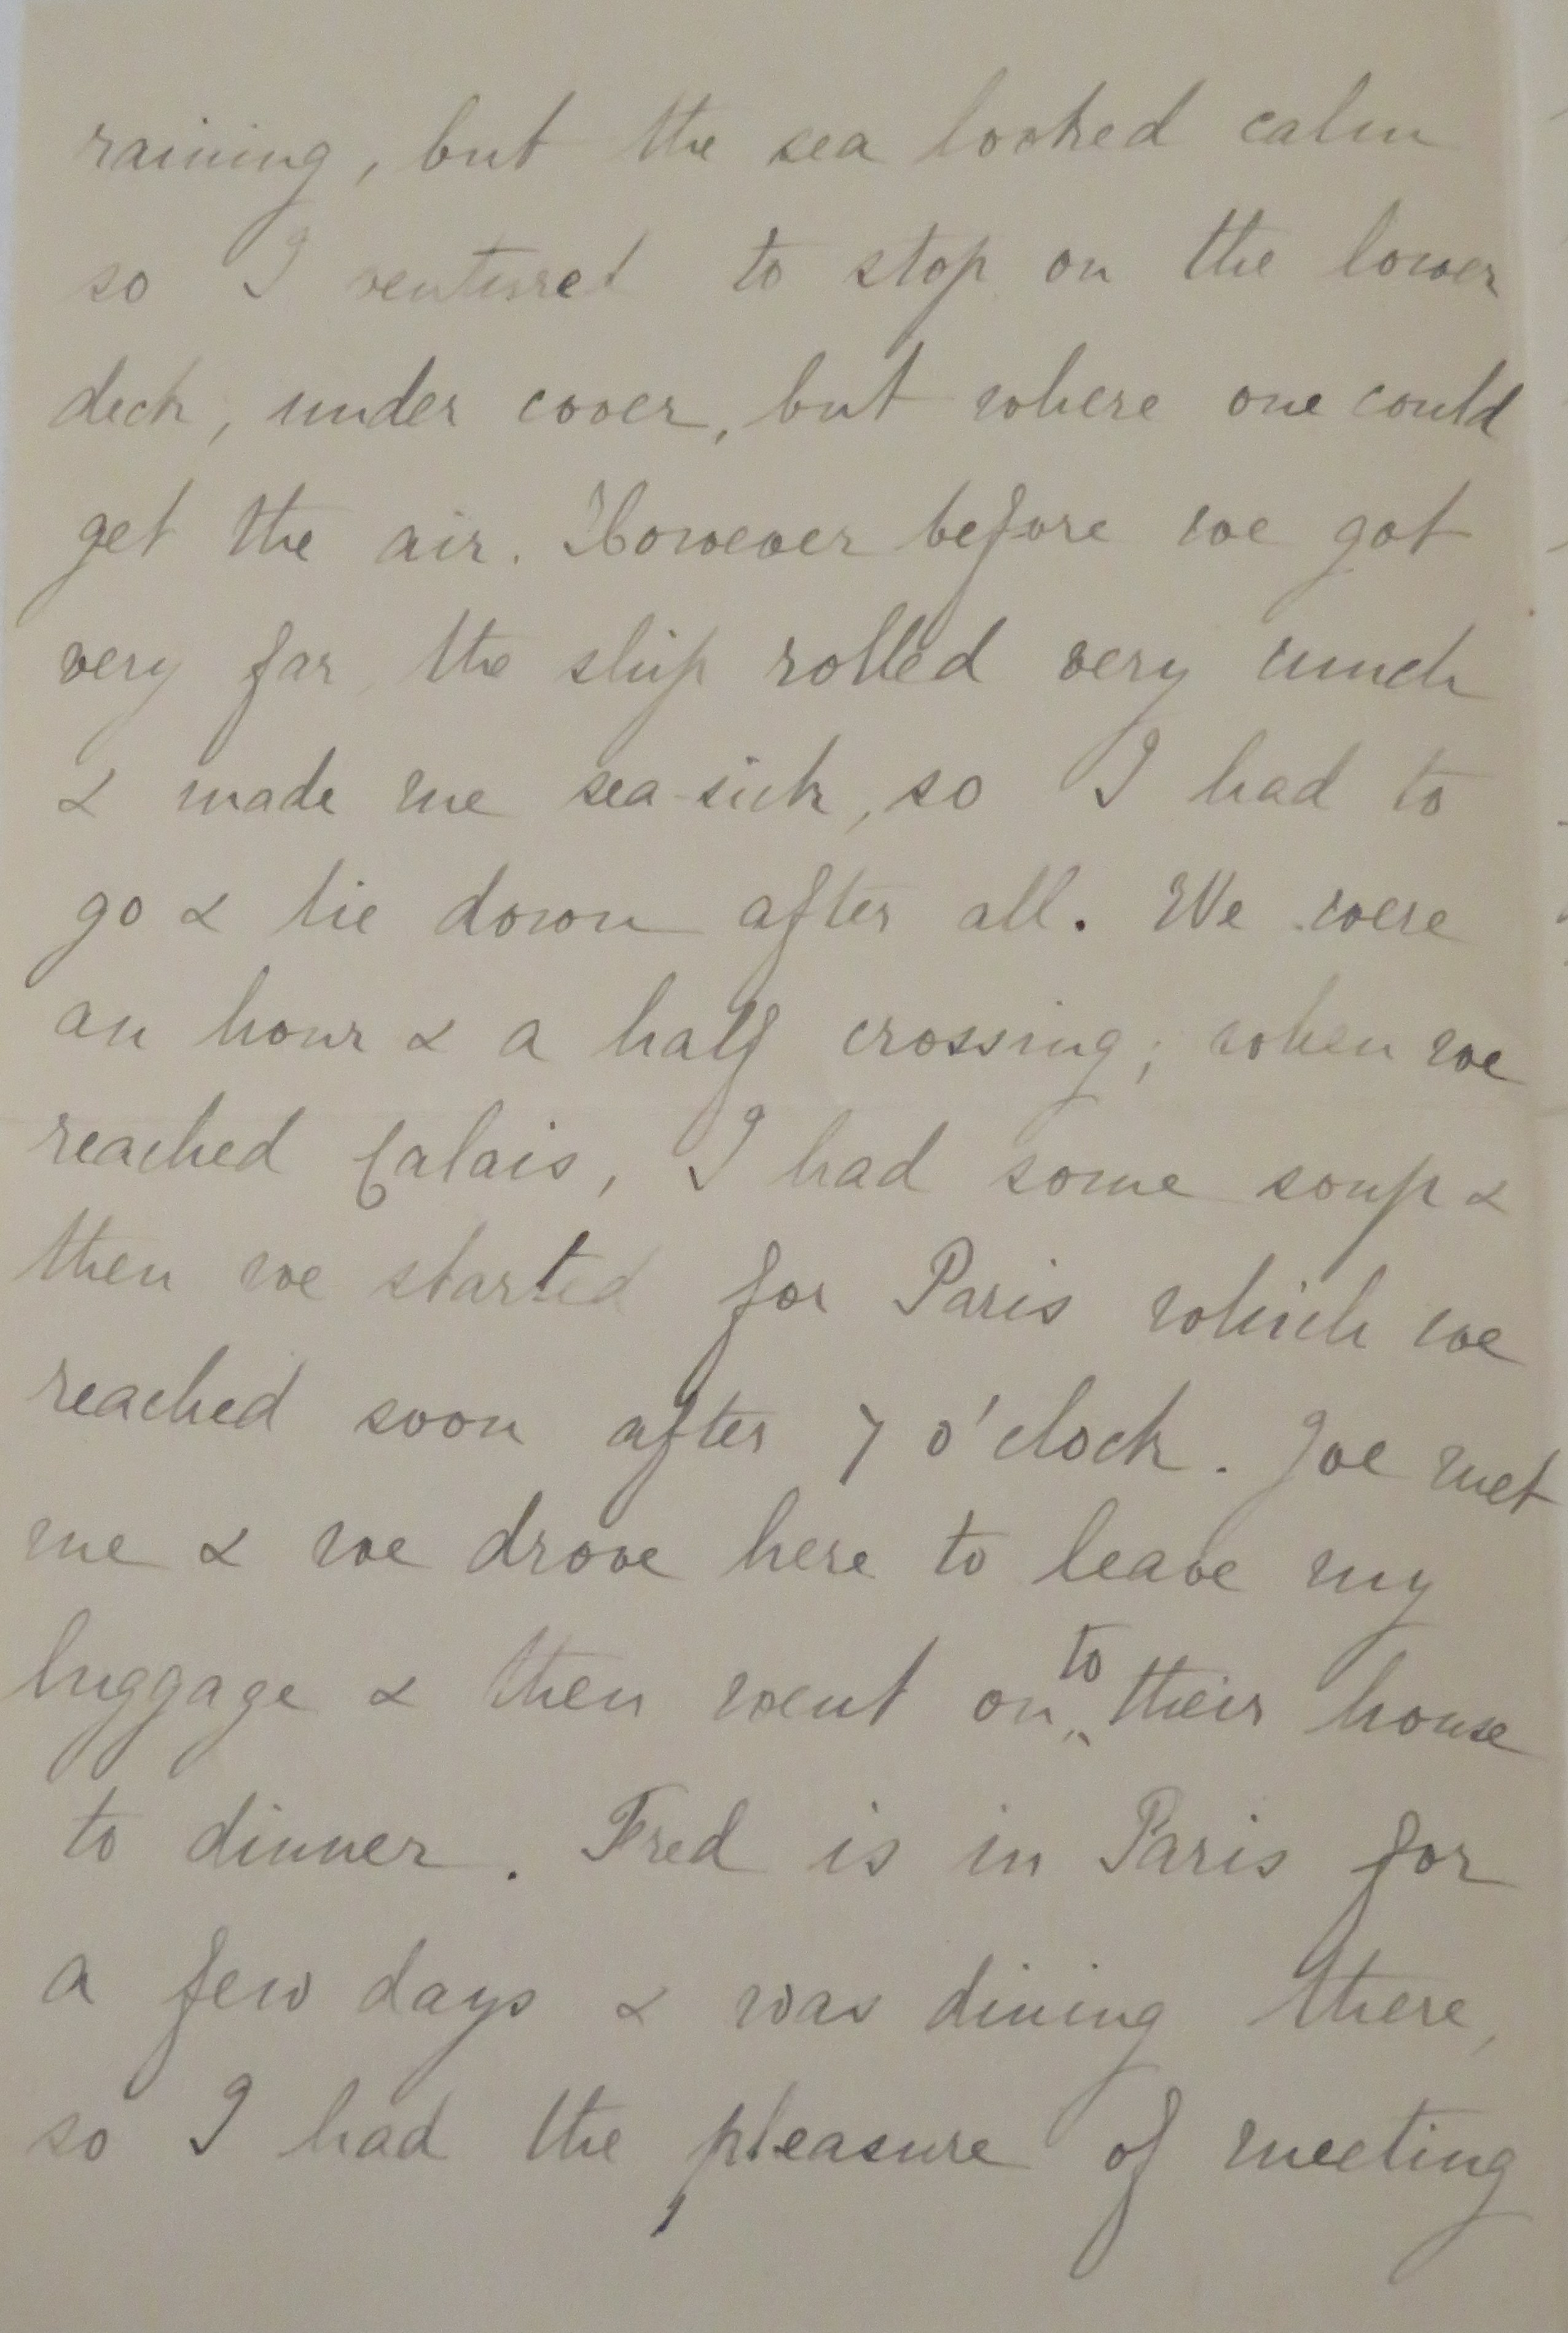 raining, but the sea looked calm
so I ventured to stop on the lower
deck, under cover, but where one could
get the air. However before we got
very far, the ship rolled very much
& made me sea-sick, so I had to
go & lie down after all. We were
an hour & a half crossing; when we
reached Calais, I had some soup &
then we started for Paris which we
reached soon after 7 o'clock. Joe met
me & we drove here to leave my
luggage & then went on to their house
to dinner. Fred is in Paris for
a few days & was dining there,
so I had the pleasure of meeting